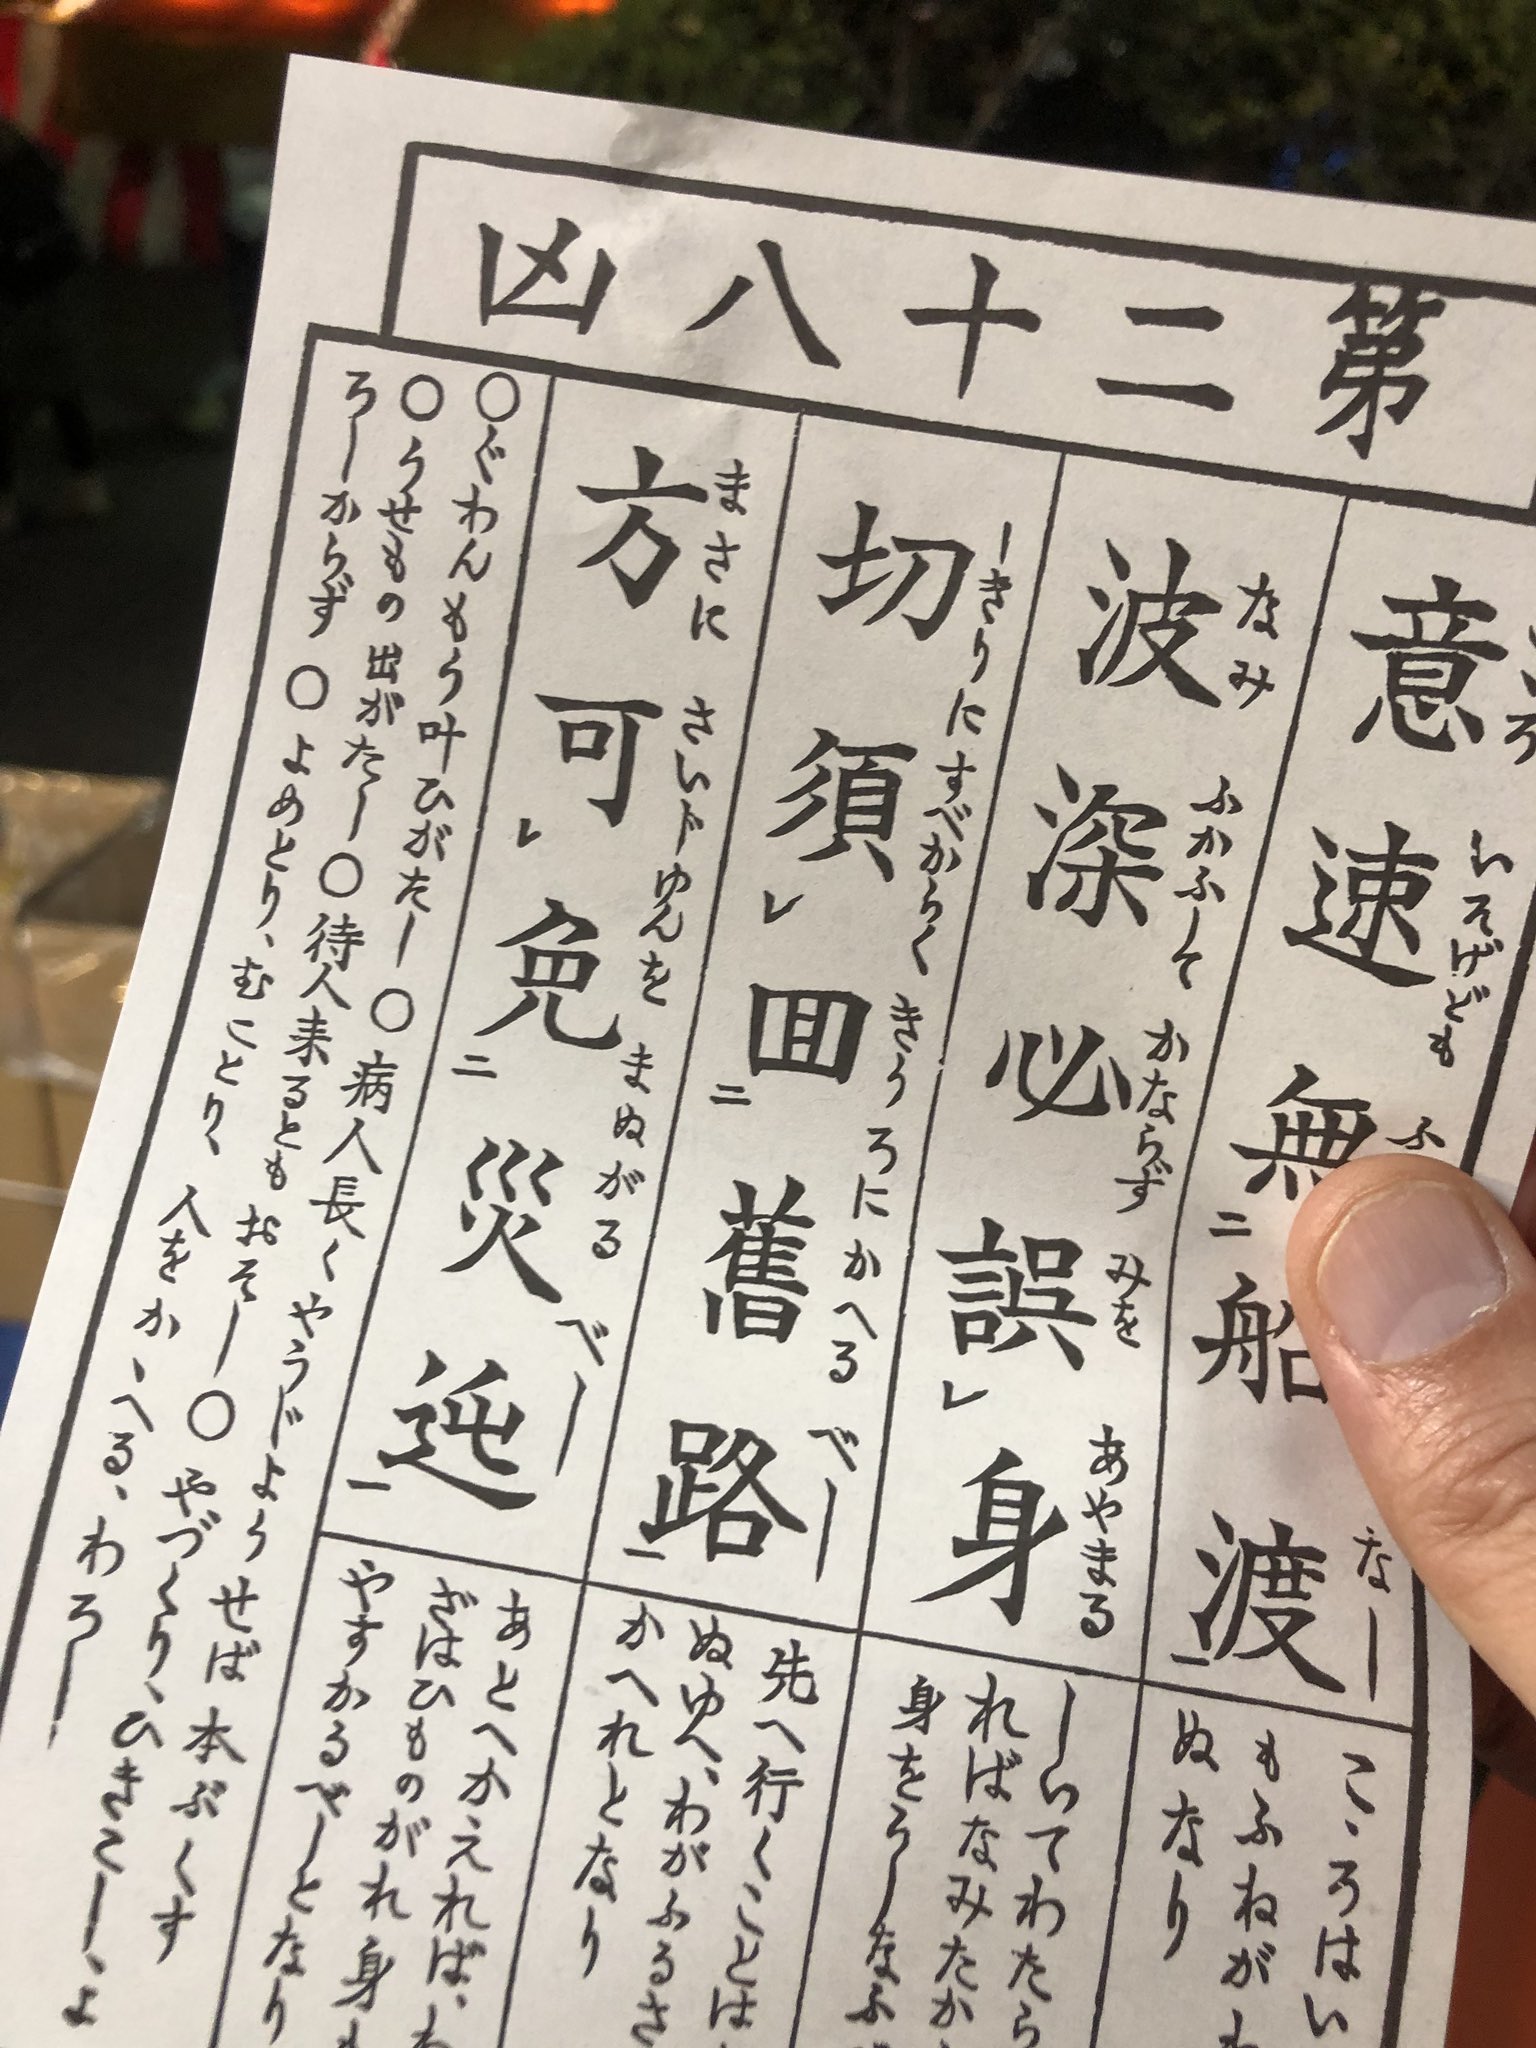 第二十八凶
意速無船渡
いそげども ふ なし
波深必誤身
なみ ふかふして かならず みを あやまる
切須回舊路
しきりにすべからく きうろにかへる べし
方可免災迍
まさに さいドゆんを まぬがる べし
こゝろはい
もふねがも
ぬなり
しいてわたら
ればなみたか
身をろしなふ
先へ行くことは
ぬゆへ、わがふるさ
かへれとなり
あとへかえれば、わ
ざはひものがれ身も
やすかるべしとなり
○ぐわんもう叶ひがたし○病人長くやうじようせば本ぶくす
○うせもの出がたし○待人来るともおそし○やづくり、ひきこし、よ
ろしからず○よめとり、むことり、人をかゝへる、わろし